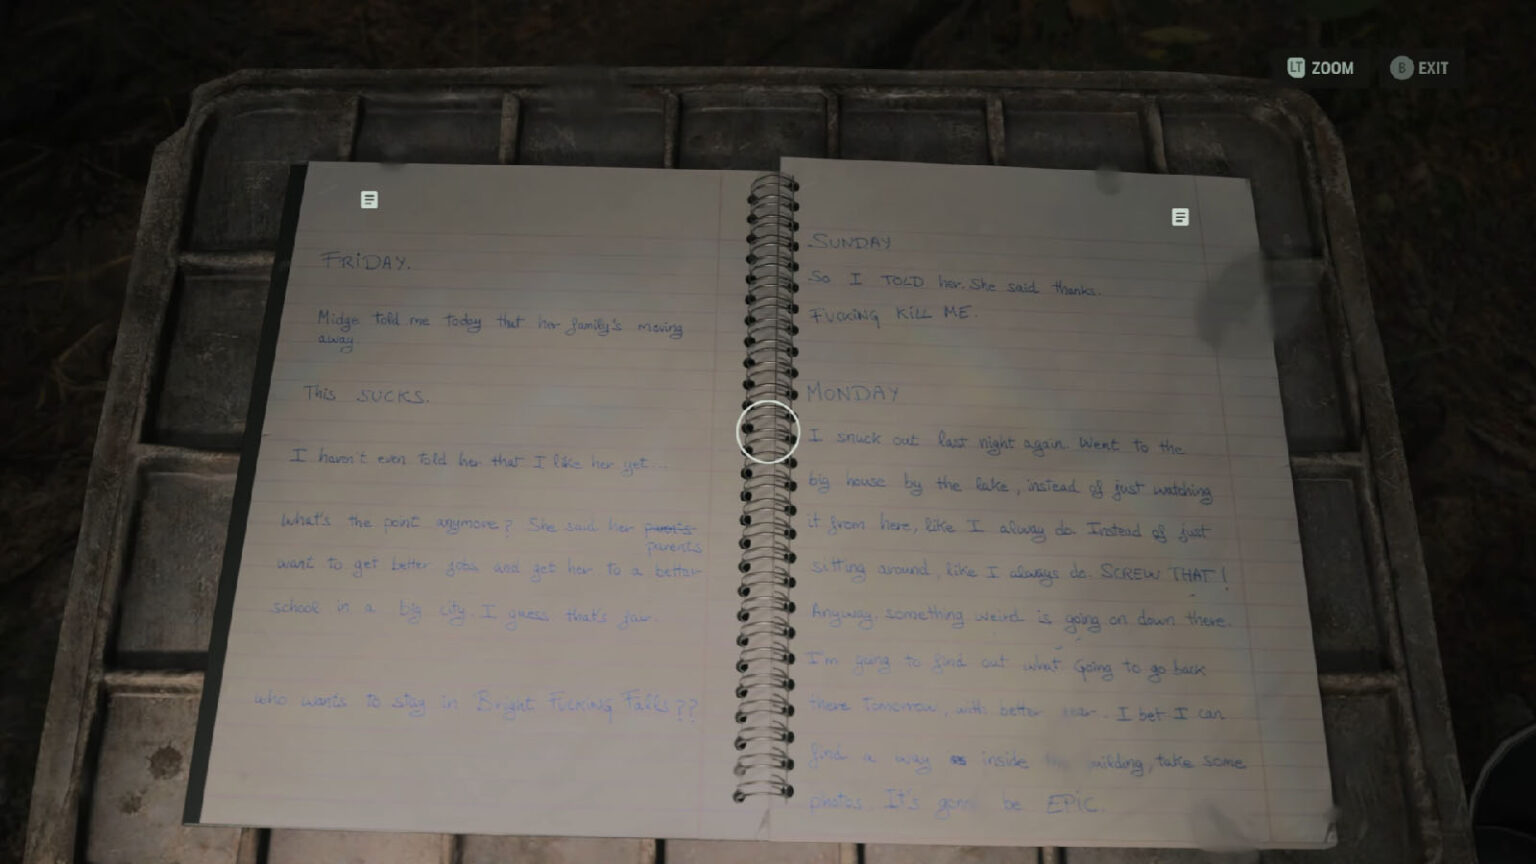 LT ZOOM
B EXIT
FRIDAY.
Midge told me today that her family's moving
away
This SUCKS.
I haven't even told her that I like her yet...
What's the point anymore? She said her parent's
parents
want to get better jobs and get her to a better
school in a big city. I guess that's fair.
who wants to stay in Bright FUCKING Falls??
SUNDAY
So I TOLD her. She said thanks.
FUCKING KILL ME.
MONDAY
I snuck out last night again. Went to the
big house by the lake, instead of just watching
it from here, like I always do. Instead of just
sitting around, like I always do. SCREW THAT!
Anyway, something weird is going on down there.
I'm going to find out what. Going to go back
there Tomorrow, with better gear. I bet I can
find a way inside building, take some
photos. It's gonna be EPIC.